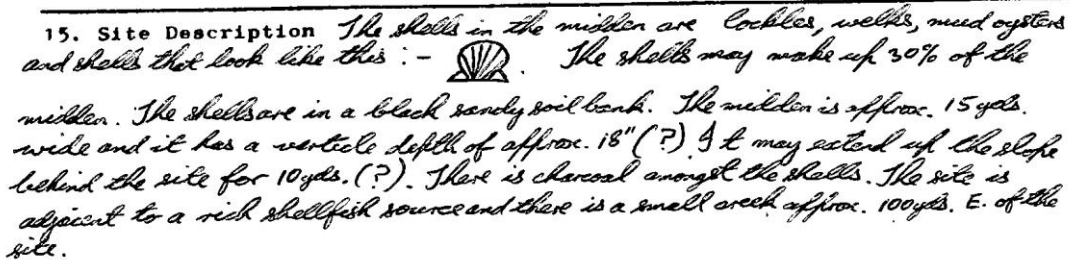 15. Site Description The shells in the midden are cockles, welks, mud oysters
and shells that look like this :- . The shells may make up 30% of the
midden. The shells are in a black sandy soil bank. The midden is approx. 15 yds.
wide and it has a verticle depth of approx. 18" (?) It may extend up the slope
behind the site for 10 yds. (?). There is charcoal amongst the shells. The site is
adjacent to a rich shellfish source and there is a small creek approx. 100 yds. E. of the
site.